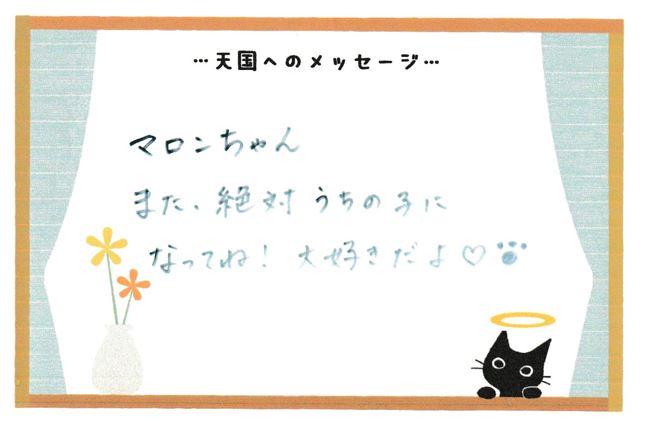 …天国へのメッセージ…
マロンちゃん
また、絶対うちの子に
なってね！大好きだよ♡🐾